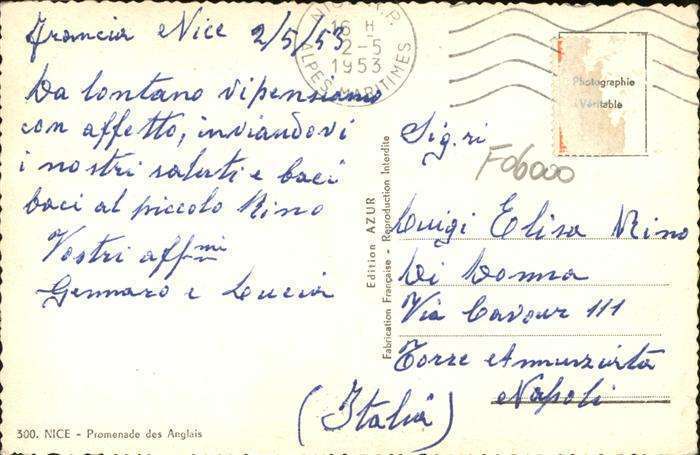 Francia Nice 2/5/53
Da lontano vi pensiamo
con affetto, inviandovi
i nostri saluti e baci
baci al piccolo Nino
Vostri aff.mi
Gennaro e Lucia
16 H
2-5
1953
ALPES-MARITIMES
Photographie
Véritable
Sig.ri
F06000
Luigi Elisa Nino
Di Donna
Via Cavour 111
Torre Annunziata
Napoli
(Italia)
Edition AZUR
Fabrication Française - Reproduction Interdite
300. NICE - Promenade des Anglais